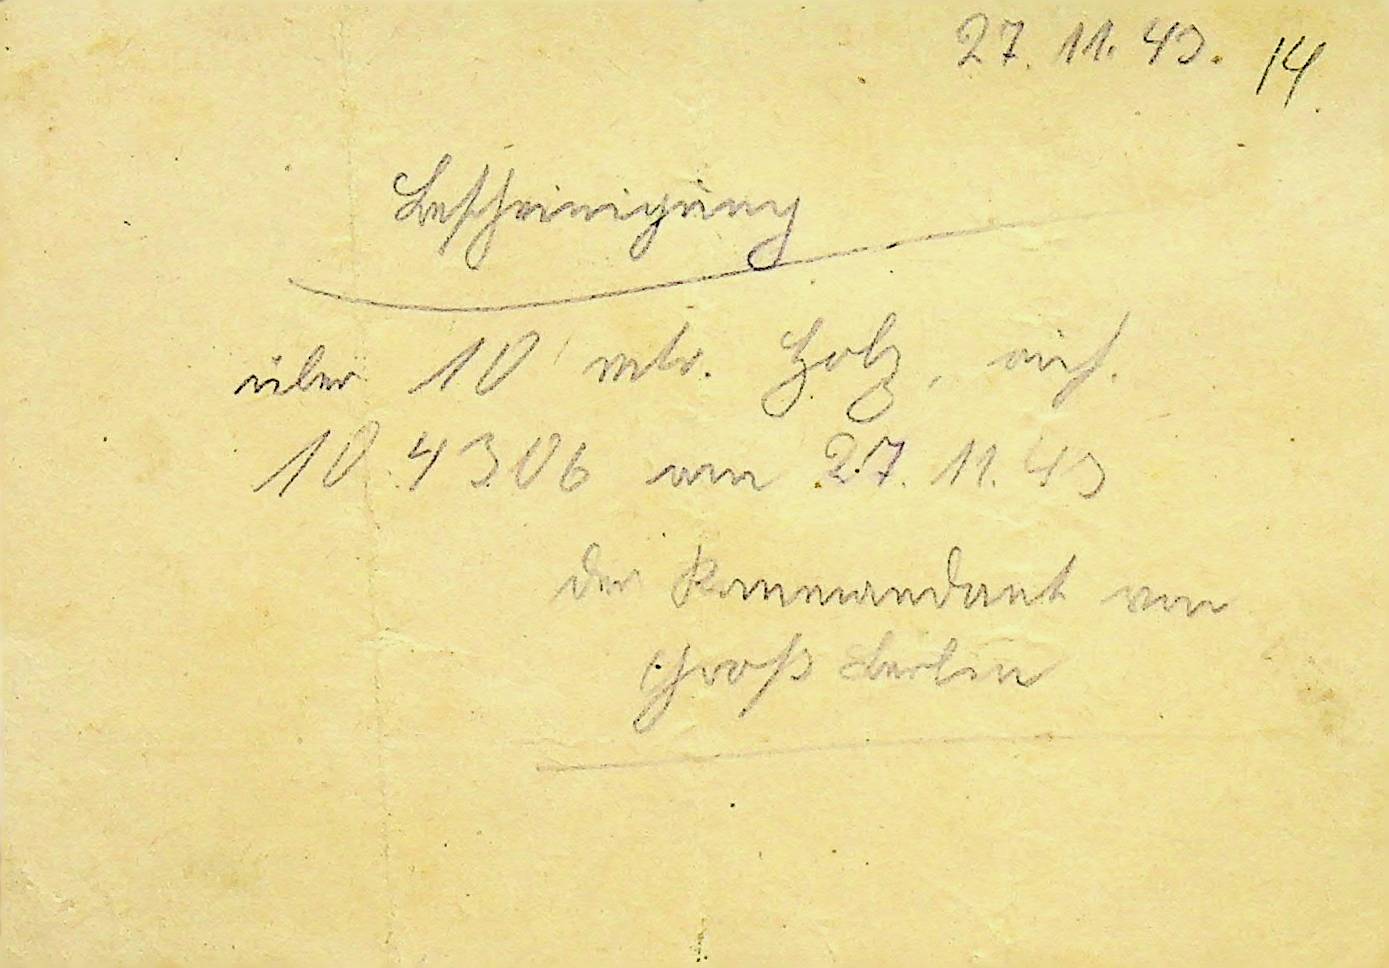 27. 11. 43. 14.
Bescheinigung
über 10 mtr. Holz, auf.
10.4306 am 27. 11. 43
der Kommandant von
Groß Berlin